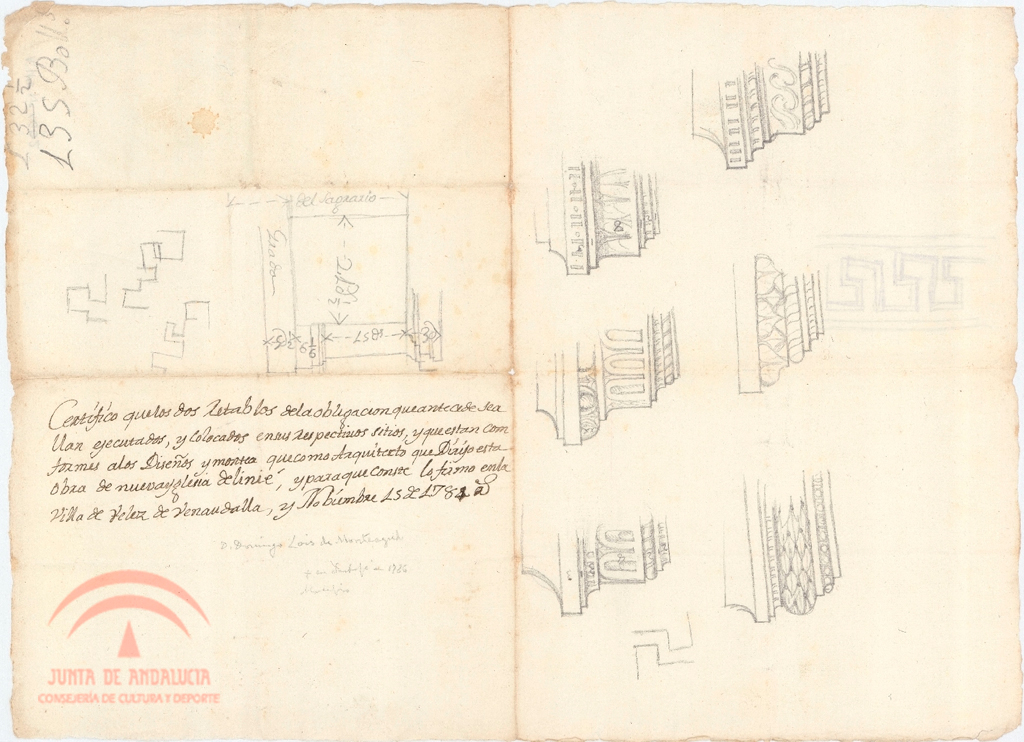 132 1/2
135 Bolls.
del sagrario
Gradon
Certifico que los dos Retablos de la obligacion que antecede sea
llan ejecutados, y colocados en sus respectivos sitios, y que estan con
formes a los Diseños y montea que como Arquitecto que Dirijo esta
obra de nueva yglesia delinié, y para que conste lo firmo en la
Villa de Velez de Venaudalla, y Nobiembre 15 de 1781
D. Domingo Lois de Monteagudo
1786
JUNTA DE ANDALUCIA
CONSEJERÍA DE CULTURA Y DEPORTE